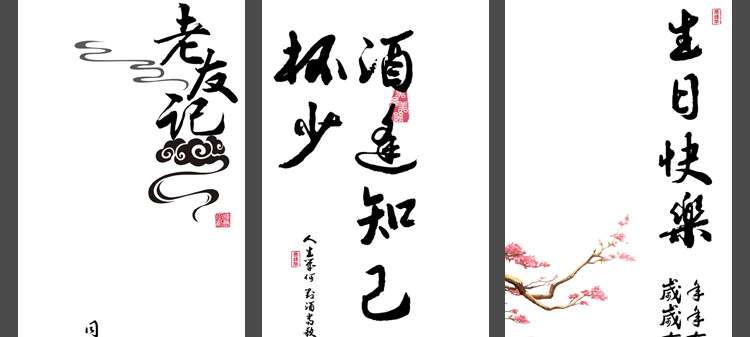 老友记
同
酒逢知己
杯少
人生几何 对酒当歌
生日快樂
年年
歲歲